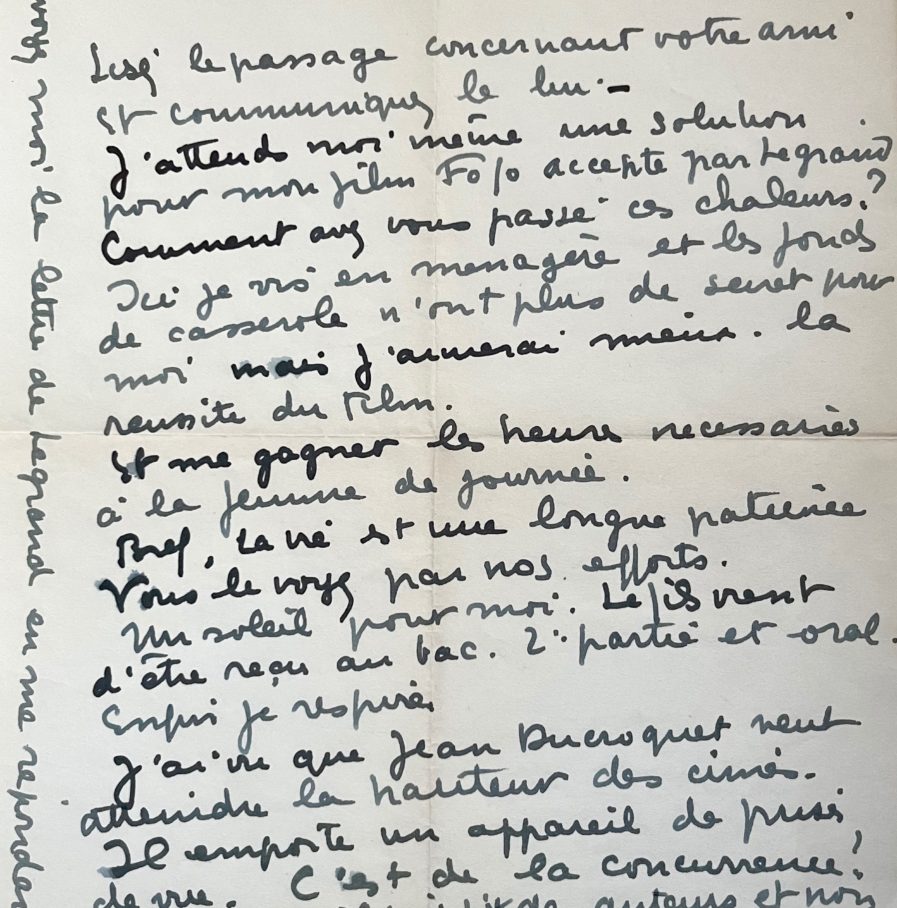 Lisez le passage concernant votre ami
et communiquez le lui.-
J'attends moi même une solution
pour mon film accepté par Legrand
Comment avez vous passé ces chaleurs.?
Ici je vis en menagère et les fonds
de casserole n'ont plus de secret pour
moi mais j'aimerai mieux. la
reussite du Film.
et me gagner les heures necessaires
à la femme de journée.
Bref, La vie est une longue patience
Vous le voyez par nos efforts.
Un soleil pour moi. Le fils vient
d'être reçu au bac. 2° partie et oral.
Enfin je respire.
J'ai vu que Jean Ducroquet veut
atteindre la hauteur des cimes.
Il emporte un appareil de prises
de vue. C'est de la concurrence!
auteurs et non
moi la lettre de Legrand en me